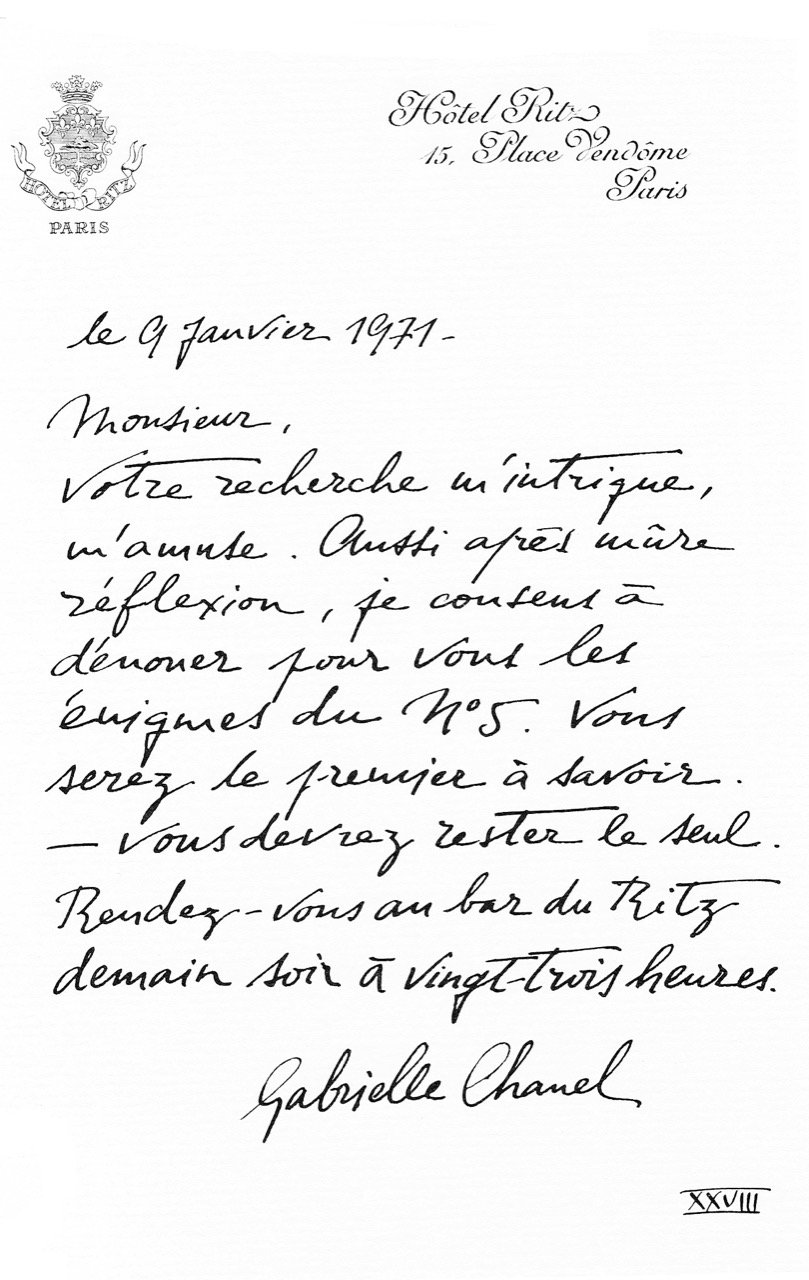 HOTEL RITZ
PARIS
Hôtel Ritz
15, Place Vendôme
Paris
le 9 Janvier 1971-
Monsieur,
Votre recherche m'intrigue,
m'amuse. Aussi après mûre
réflexion, je consens à
dénouer pour vous les
énigmes du N°5. Vous
serez le premier à savoir.
— vous devrez rester le seul.
Rendez-vous au bar du Ritz
demain soir à vingt-trois heures.
Gabrielle Chanel
XXVIII